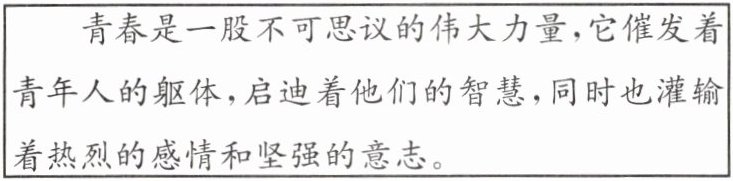 青春是一股不可思议的伟大力量,它催发着
青年人的躯体,启迪着他们的智慧,同时也灌输
着热烈的感情和坚强的意志。